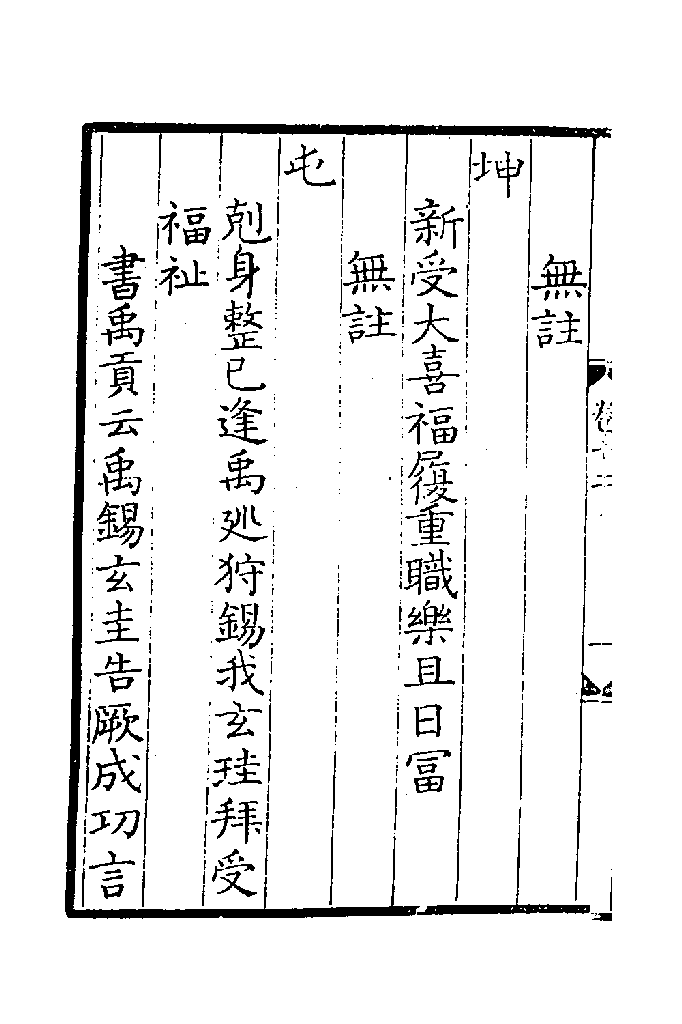 無註
坤
新受大喜福履重職樂且日冨
無註
屯
剋身整已逢禹廵狩錫我玄珪拜受
福祉
書禹貢云禹錫玄圭告厥成功言